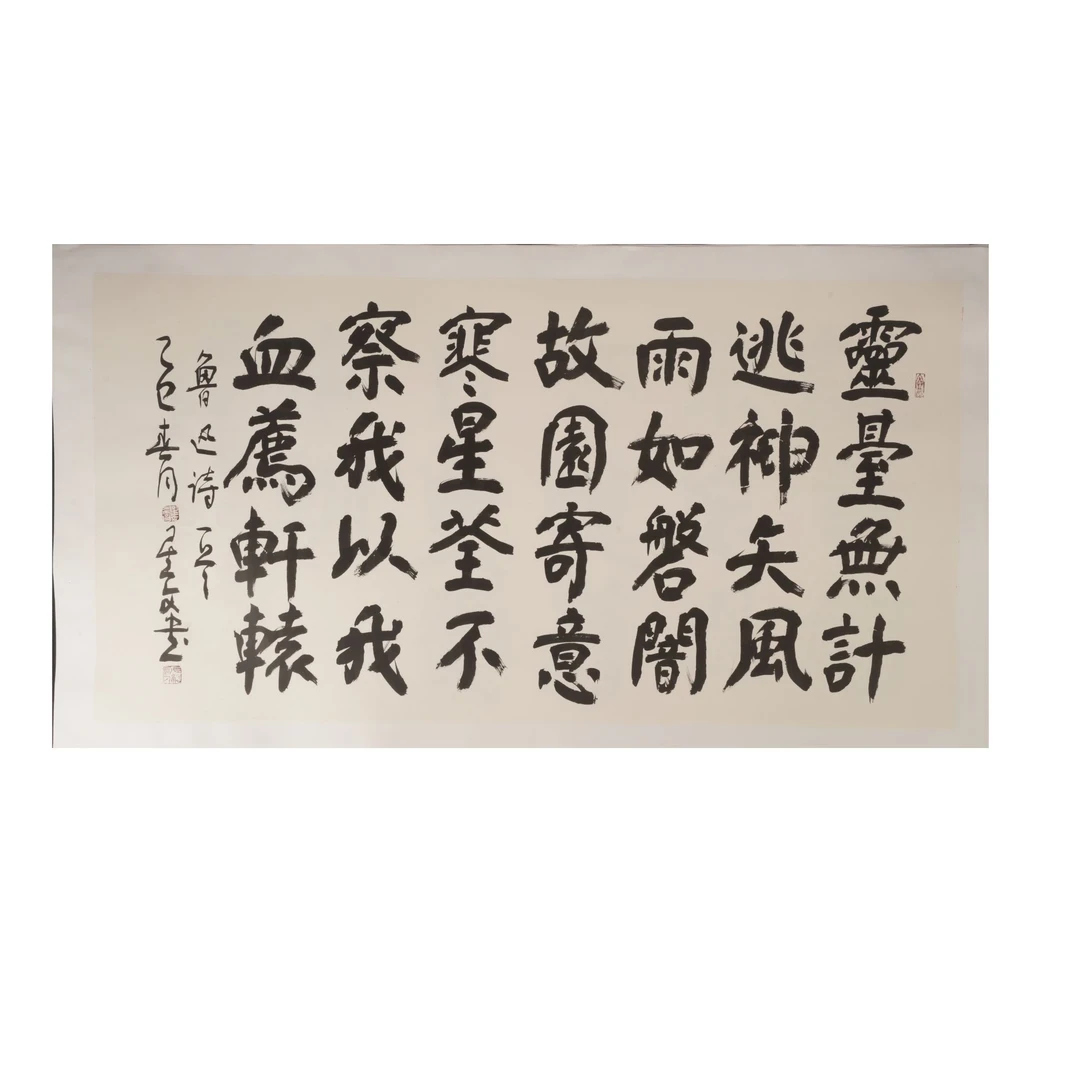 靈臺無計
逃神矢風
雨如磐闇
故園寄意
寒星荃不
察我以我
血薦軒轅
魯迅詩一首
乙巳春月 書